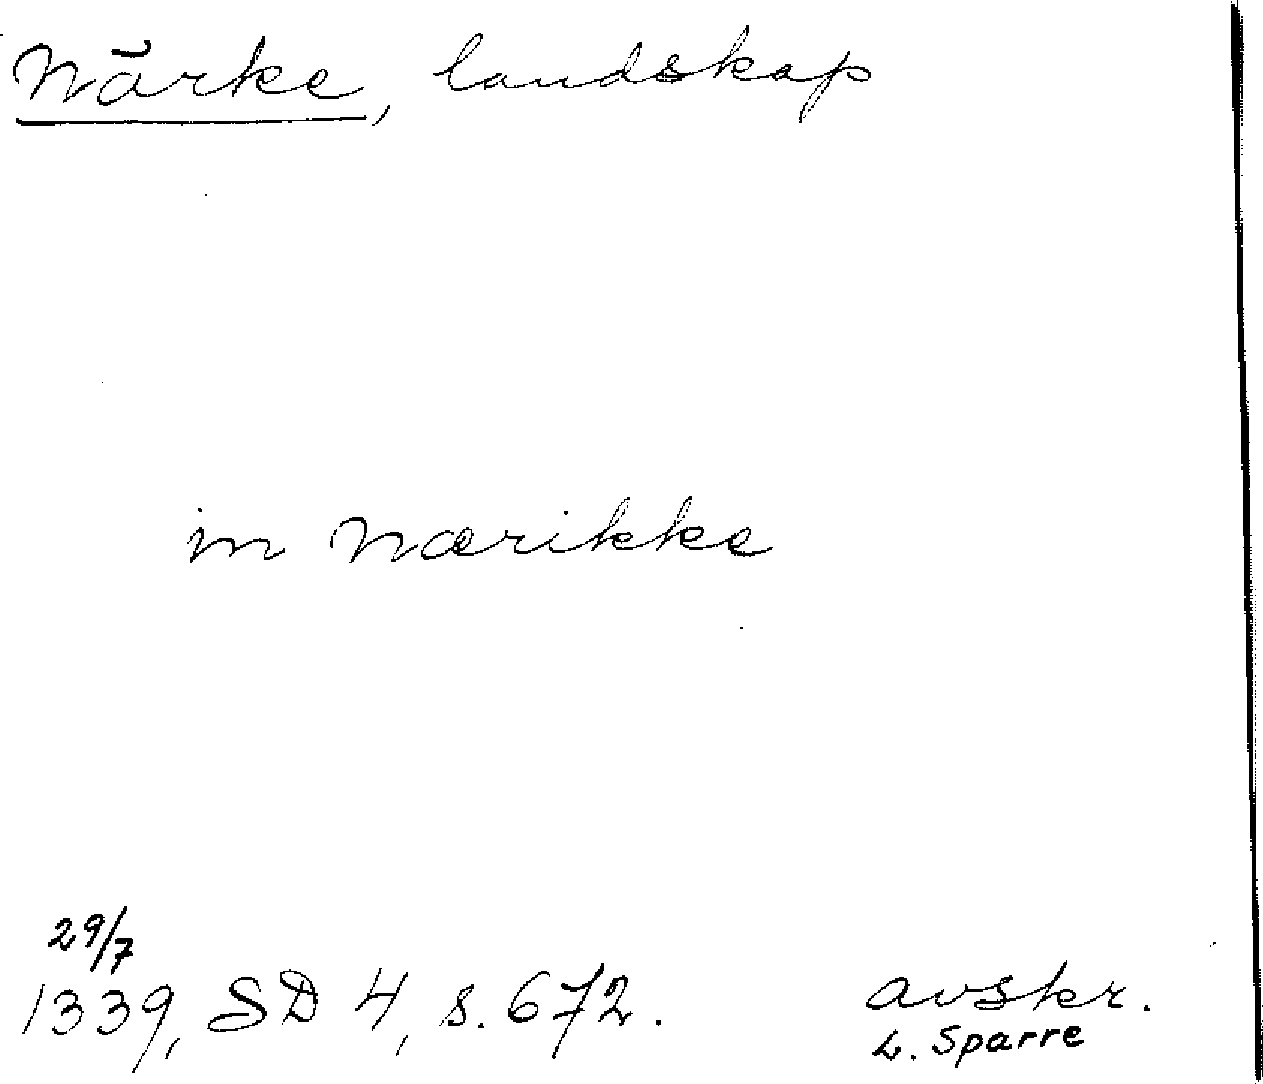 Närke, landskap
in Nærikke
29/7
1339, SD 4, s. 672.
avskr.
L. Sparre